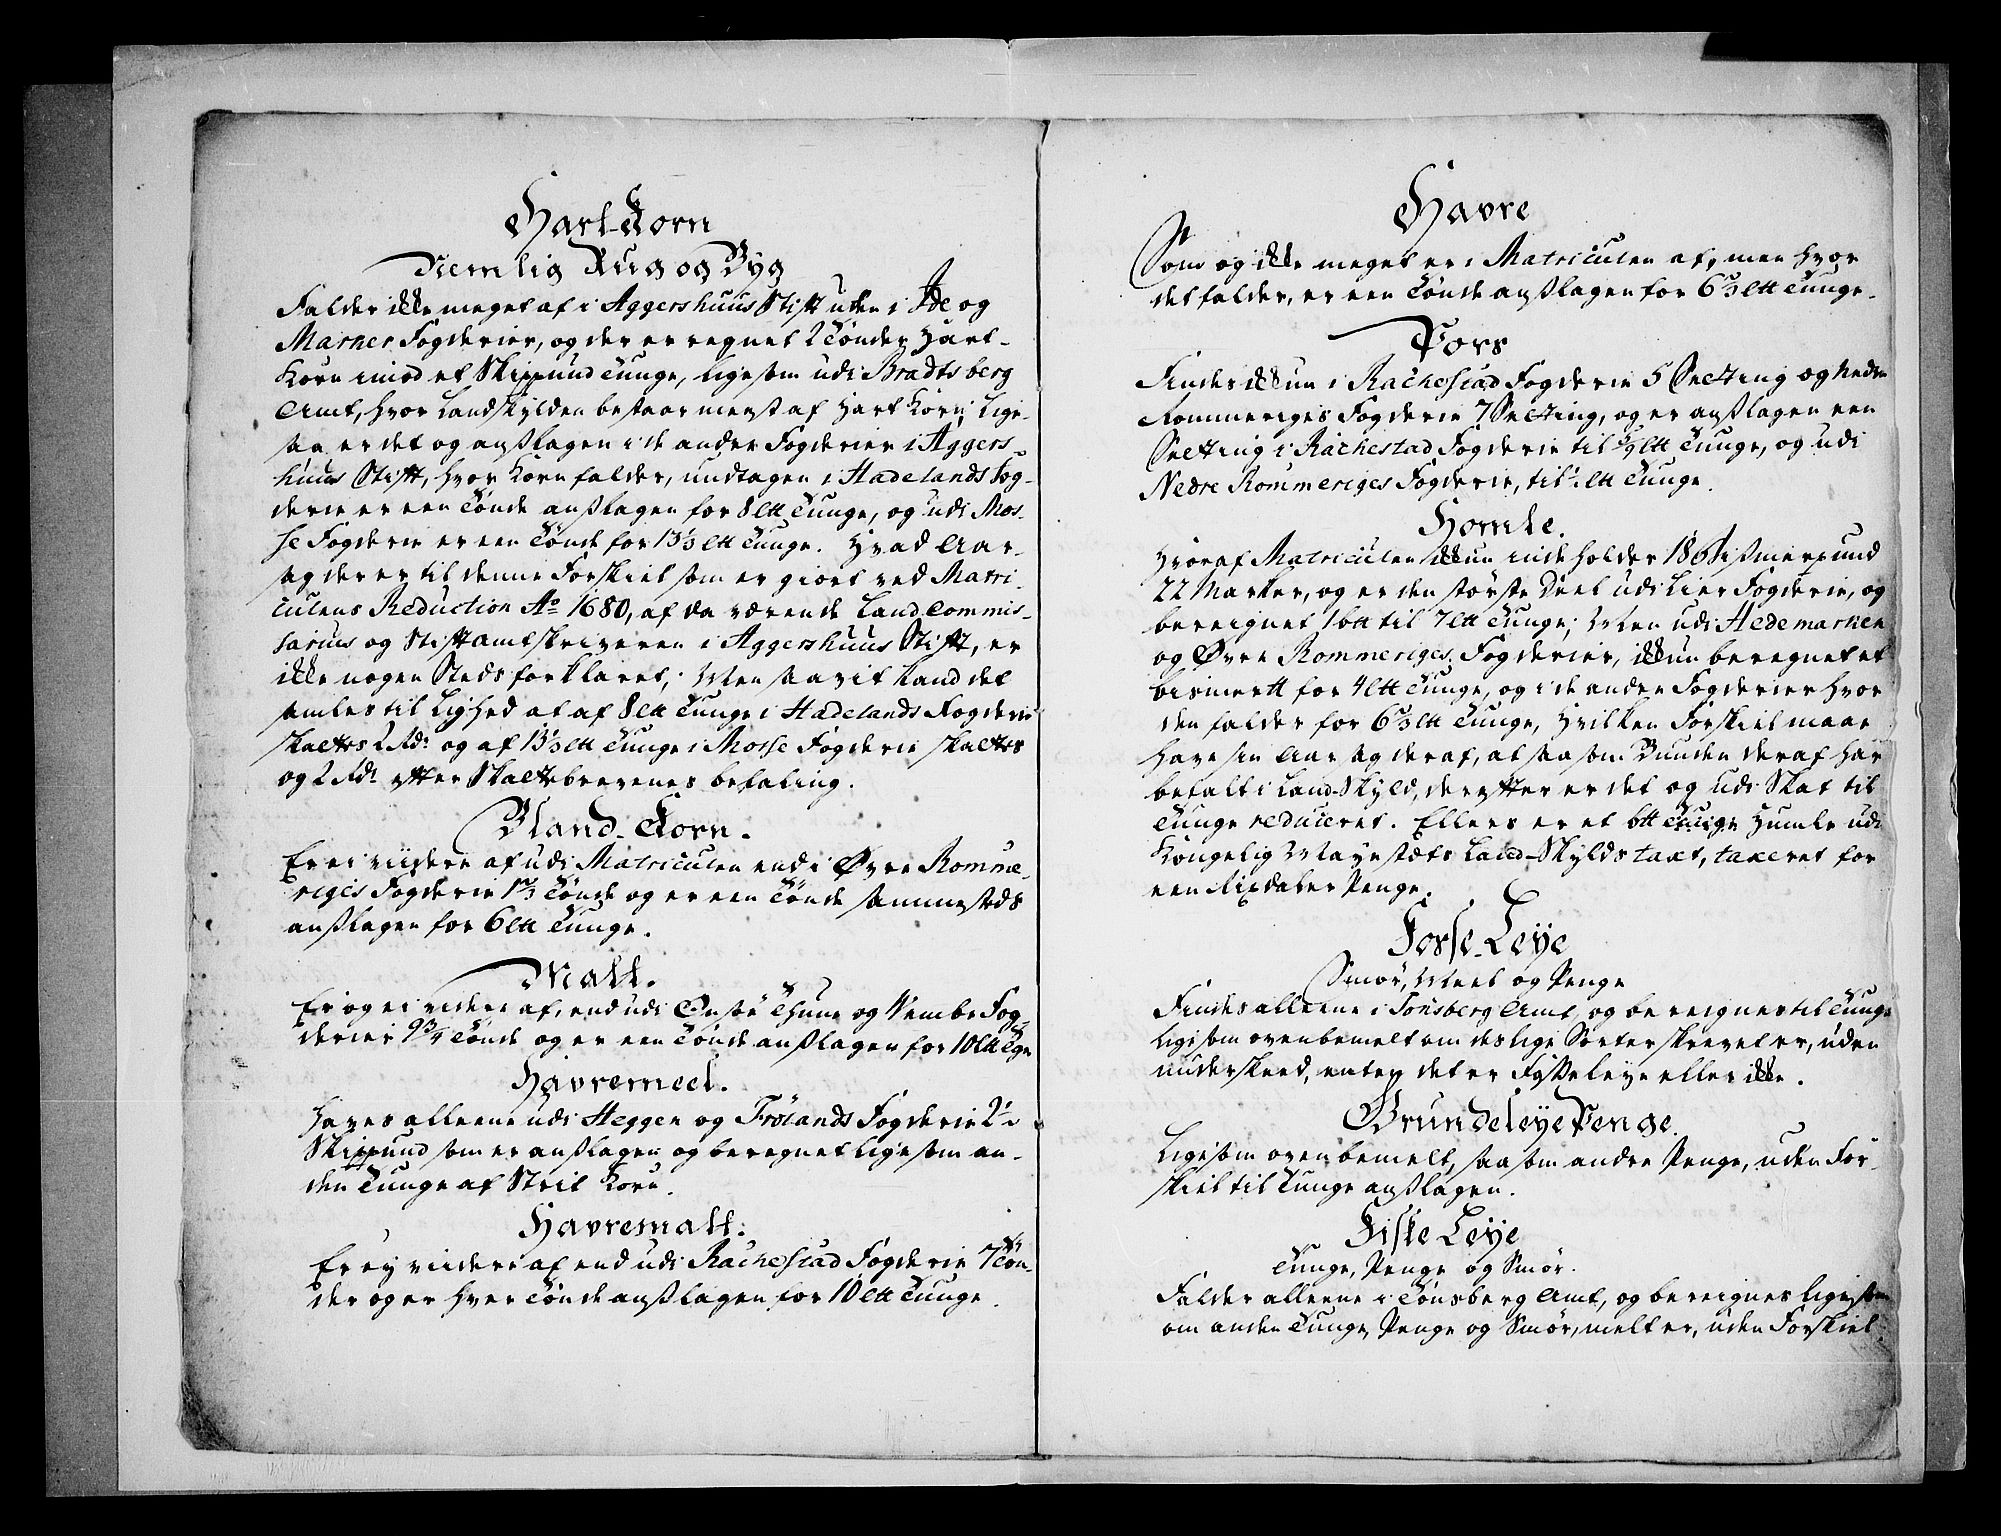 Hart-Korn
Nemlig Rug og Byg
Falder ikke meget af i Aggershuus Stift uden i Ide og
Marker Fogderier, og der er regnet 2 Tønder Hart-
Korn imod et Skippund Tunge, ligesom udi Bradtsberg
Amt, hvor Landskylden bestaar mest af Hart Korn; Lige-
saa er det og anslagen i de andre Fogderier i Aggers
huus Stift, hvor Korn falder, undtagen i Hadelands Fog-
derie er een Tønde anslagen for 8 Ltt Tunge, og udi Mos-
se Fogderie er een Tønde for 13⅓ Ltt Tunge. Hvad Aar-
sag der er til denne Forskiel som er giort ved Matri-
culens Reduction Ao 1680, af da værende Land Commis-
sarius og Stiftamtskriveren i Aggershuus Stift, er
ikke nogen Steds forklaret; Men saavit Land det
samles til Lighed at af 8 Ltt Tunge i Hadelands Fogderie
skattes 2 Rdr og af 13⅓ Ltt Tunge i Mosse Fogderie skattes
og 2 Rdr efter Skattebrevenes befaling.
Bland-Korn.
Er ei viidere af udi Matriculen end i Øvre Romme-
riges Fogderie 1⅔ Tønde og er een Tønde sammesteds
anslagen for 6 Ltt Tunge.
Malt.
Er og ei videre af, end udi Onsøe Thune og Vembe Fog-
derier 9¾ Tønde og er een Tønde anslagen for 10 Ltt Tge
Havremeel.
Haves alleene udi Heggen og Frølands Fogderie 2½
Skippund som er anslagen og beregnet ligesom an-
den Tunge af Strit Korn.
Havremalt.
Er ey viidere af end udi Rachestad Fogderie 7 Tøn-
der og er hver Tønde anslagen for 10 Ltt Tunge.
Havre
Som og ikke meget er i Matriculen af, men hvor
det falder, er een Tønde anslagen for 6⅔ Ltt Tunge.
Pors
Findes ikkun i Rachestad Fogderie 5 Setting og Nedre
Rommeriges Fogderie 7 Setting, og er anslagen een
Setting i Rachestad Fogderie til ⅔ Ltt Tunge, og udi
Nedre Rommeriges Fogderie, til 1 Ltt Tunge.
Homle.
Hvoraf Matriculen ikkun indeholder 186 Bismerpund
22 Marker, og er den største Deel udi Lier Fogderie, og
bereignet 1 btt til 7 Ltt Tunge; Men udi Hedemarken
og Øvre Rommeriges Fogderier, ikkun beregnet et
bismertt for 4 Ltt Tunge, og i de andre Fogderier hvor
den falder for 6⅔ Ltt Tunge, hvilken Forskiel maae
have sin Aarsag deraf, at saasom Bunden deraf har
befalt i Land-Skyld, derefter er det og udi Skat til
Tunge reduceret. Ellers er et btt Humle udi
Kongelig Mayestæts Land-Skylds taxt, taxeret for
een Rixdaler Penge.
Fosse-Leye
Smør, Meel og Penge
Findes alleene i Tønsberg Amt, og bereignes til Tunge
ligesom ovenbemelt om deslige Sorter skrevet er, uden
underskeed, enten det er Fosseleye eller ikke.
Grundeleye Penge.
Ligesom ovenbemelt, saasom andre Penge, uden For-
skiel til Tunge anslagen.
Fiske Leye
Tunge, Penge og Smør.
Falder alleene i Tønsberg Amt, og bereignes ligesom
om anden Tunge, Penge og Smør, melt er, uden Forskiel.